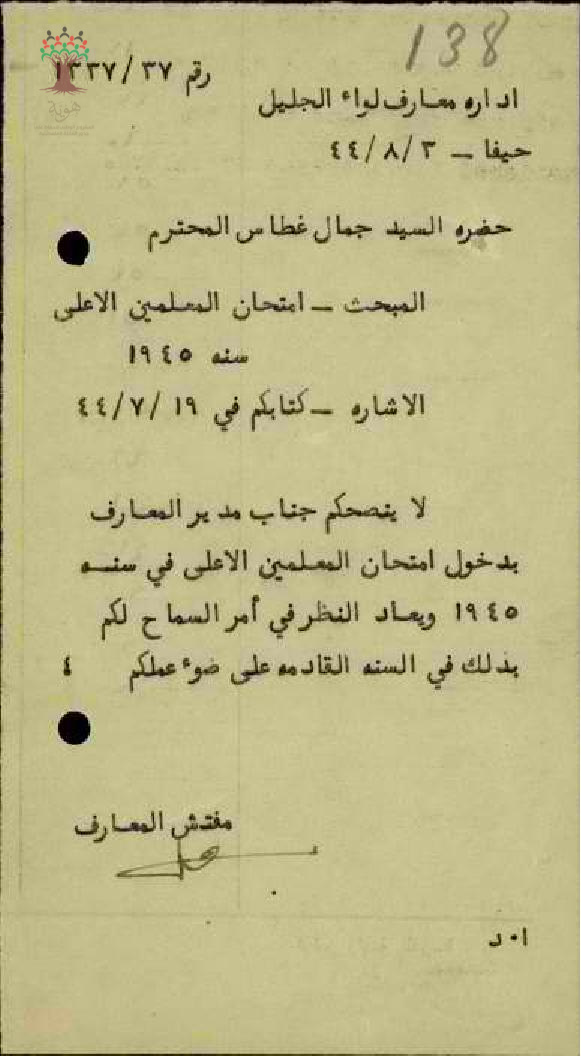 138
رقم ١٣٣٧/٣٧
اداره معارف لواء الجليل
حيفا – ٤٤/٨/٣
حضره السيد جمال غطاس المحترم
المبحث – امتحان المعلمين الاعلى
سنه ١٩٤٥
الاشاره – كتابكم في ٤٤/٧/١٩
لا ينصحكم جناب مدير المعارف
بدخول امتحان المعلمين الاعلى في سنه
١٩٤٥ ويعاد النظر في أمر السماح لكم
بذلك في السنه القادمه على ضوء عملكم ٤
مفتش المعارف
ا٠د
هوية